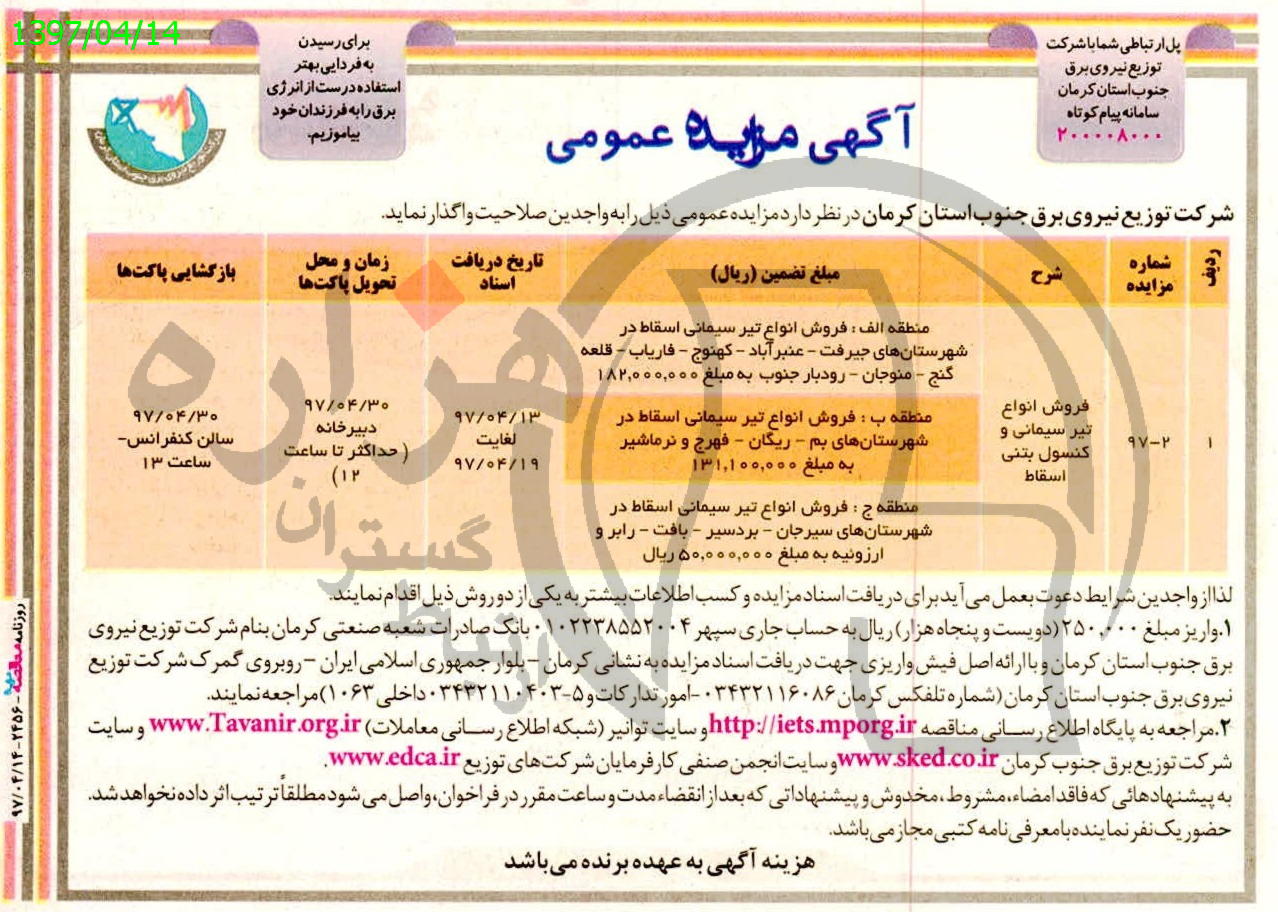 1397/04/14
پل ارتباطی شما با شرکت
توزیع نیروی برق
جنوب استان کرمان
سامانه پیام کوتاه
۲۰۰۰۰۸۰۰۰
برای رسیدن
به فردایی بهتر
استفاده درست از انرژی
برق را به فرزندان خود
بیاموزیم.
شرکت توزیع نیروی برق جنوب استان کرمان
آگهی مزایده عمومی
شرکت توزیع نیروی برق جنوب استان کرمان در نظر دارد مزایده عمومی ذیل را به واجدین صلاحیت واگذار نماید.
ردیف
شماره مزایده
شرح
مبلغ تضمین (ریال)
تاریخ دریافت اسناد
زمان و محل تحویل پاکت‌ها
بازگشایی پاکت‌ها
۱
۹۷-۲
فروش انواع
تیر سیمانی و
کنسول بتنی
اسقاط
منطقه الف : فروش انواع تیر سیمانی اسقاط در
شهرستان‌های جیرفت - عنبرآباد - کهنوج - فاریاب - قلعه
گنج - منوجان - رودبار جنوب به مبلغ ۱۸۲,۰۰۰,۰۰۰
منطقه ب : فروش انواع تیر سیمانی اسقاط در
شهرستان‌های بم - ریگان - فهرج و نرماشیر
به مبلغ ۱۳۱,۱۰۰,۰۰۰
منطقه ج : فروش انواع تیر سیمانی اسقاط در
شهرستان‌های سیرجان - بردسیر - بافت - رابر و
ارزوئیه به مبلغ ۵۰,۰۰۰,۰۰۰ ریال
۹۷/۰۴/۱۳
لغایت
۹۷/۰۴/۱۹
۹۷/۰۴/۳۰
دبیرخانه
(حداکثر تا ساعت
۱۲)
۹۷/۰۴/۳۰
سالن کنفرانس-
ساعت ۱۳
لذا از واجدین شرایط دعوت بعمل می آید برای دریافت اسناد مزایده و کسب اطلاعات بیشتر به یکی از دو روش ذیل اقدام نمایند.
۱.واریز مبلغ ۲۵۰,۰۰۰ (دویست و پنجاه هزار) ریال به حساب جاری سپهر ۰۱۰۲۲۳۸۵۵۲۰۰۴ بانک صادرات شعبه صنعتی کرمان بنام شرکت توزیع نیروی
برق جنوب استان کرمان و با ارائه اصل فیش واریزی جهت دریافت اسناد مزایده به نشانی کرمان - بلوار جمهوری اسلامی ایران - روبروی گمرک شرکت توزیع
نیروی برق جنوب استان کرمان (شماره تلفکس کرمان ۰۳۴۳۲۱۱۶۰۸۶-امور تدارکات و ۵-۰۳۴۳۲۱۱۰۴۰۳ داخلی ۱۰۶۳) مراجعه نمایند.
۲.مراجعه به پایگاه اطلاع رسانی مناقصه http://iets.mporg.ir و سایت توانیر (شبکه اطلاع رسانی معاملات) www.Tavanir.org.ir و سایت
شرکت توزیع برق جنوب کرمان www.sked.co.ir و سایت انجمن صنفی کارفرمایان شرکت های توزیع www.edca.ir.
به پیشنهادهائی که فاقد امضاء، مشروط، مخدوش و پیشنهاداتی که بعد از انقضاء مدت و ساعت مقرر در فراخوان، واصل می شود مطلقاً ترتیب اثر داده نخواهد شد.
حضور یک نفر نماینده با معرفی نامه کتبی مجاز می باشد.
هزینه آگهی به عهده برنده می باشد
روزنامه مناقصه مزایده - ۲۴۵۶ - ۹۷/۰۴/۱۴
هزاره
گستران